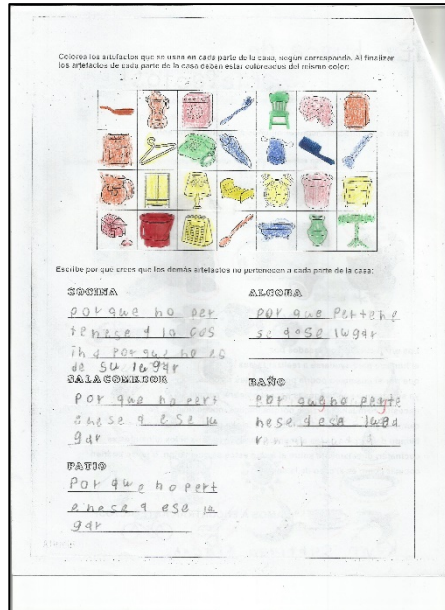 Colorea los artefactos que se usan en cada parte de la casa, según corresponda. Al finalizar
los artefactos de cada parte de la casa deben estar coloreados del mismo color:
Escribe por qué crees que los demás artefactos no pertenecen a cada parte de la casa:
COCINA
porque no per
tenese a la cos
ina porque no es
de su lugar
ALCOBA
porque pertene
se a ose lugar
SALA COMEDOR
Por que no pert
enese a ese lu
gar
BAÑO
por que no perte
nese a ese luga
r
PATIO
Por que no pert
enese a ese lu
gar